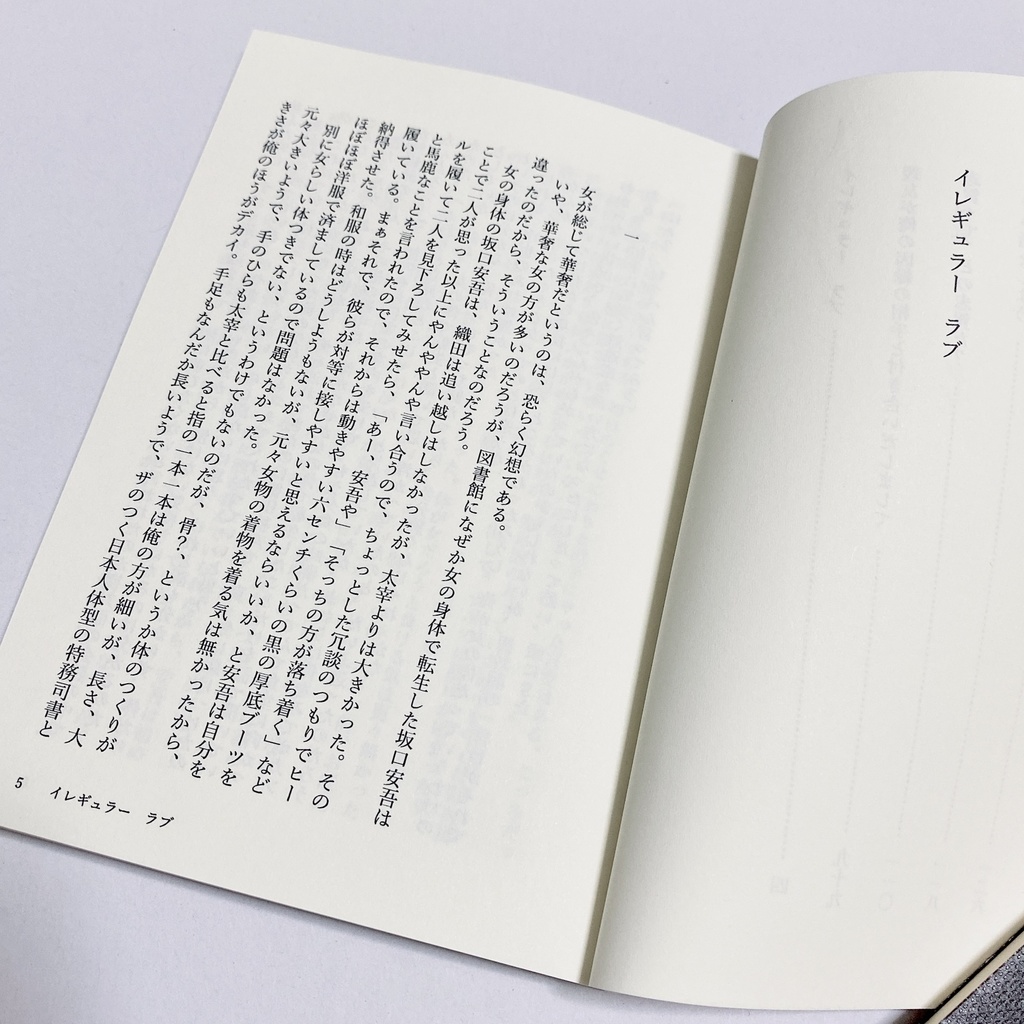 イレギュラー ラブ
一
女が総じて華奢だというのは、恐らく幻想である。
いや、華奢な女の方が多いのだろうが、図書館になぜか女の身体で転生した坂口安吾は
違ったのだから、そういうことなのだろう。
女の身体の坂口安吾は、織田は追い越しはしなかったが、太宰よりは大きかった。その
ことで二人が思った以上にやんややんや言い合うので、ちょっとした冗談のつもりでヒー
ルを履いて二人を見下ろしてみせたら、「あー、安吾や」「そっちの方が落ち着く」など
と馬鹿なことを言われたので、それからは動きやすい六センチくらいの黒の厚底ブーツを
履いている。まぁそれで、彼らが対等に接しやすいと思えるならいいか、と安吾は自分を
納得させた。和服の時はどうしようもないが、元々女物の着物を着る気は無かったから、
ほぼほぼ洋服で済ましているので問題はなかった。
別に女らしい体つきでない、というわけでもないのだが、骨?、というか体のつくりが
元々大きいようで、手のひらも太宰と比べると指の一本一本は俺の方が細いが、長さ、大
きさが俺のほうがデカイ。手足もなんだか長いようで、ザのつく日本人体型の特務司書と
5 イレギュラー ラブ